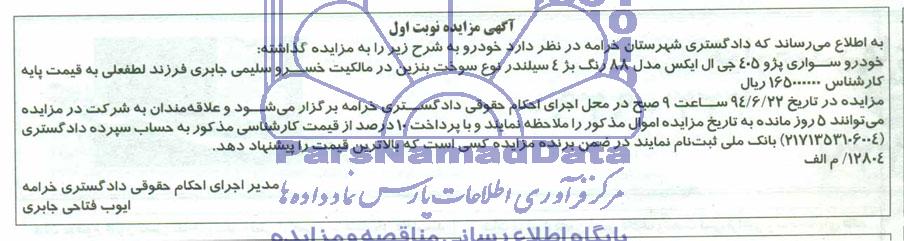 آگهی مزایده نوبت اول
به اطلاع می‌رساند که دادگستری شهرستان خرامه در نظر دارد خودرو به شرح زیر را به مزایده گذاشته:
خودرو سواری پژو ۴۰۵ جی ال ایکس مدل ۸۸ رنگ بژ ۴ سیلندر نوع سوخت بنزین در مالکیت خسرو سلیمی جابری فرزند لطفعلی به قیمت پایه
کارشناس ۱۶۵۰۰۰۰۰۰ ریال
مزایده در تاریخ ۹۴/۶/۲۲ ساعت ۹ صبح در محل اجرای احکام حقوقی دادگستری خرامه برگزار می‌شود و علاقه‌مندان به شرکت در مزایده
می‌توانند ۵ روز مانده به تاریخ مزایده اموال مذکور را ملاحظه نمایند و با پرداخت ۱۰ درصد از قیمت کارشناسی مذکور به حساب سپرده دادگستری
(۲۱۷۱۳۵۳۱۰۶۰۰۴) بانک ملی ثبت‌نام نمایند در ضمن برنده مزایده کسی است که بالاترین قیمت را پیشنهاد دهد.
۱۲۸۰۴/ م الف
ParsNamadData
مدیر اجرای احکام حقوقی دادگستری خرامه
مرکز فرآوری اطلاعات پارس نماد داده ها
ایوب فتاحی جابری
پایگاه اطلاع رسانی مناقصه و مزایده